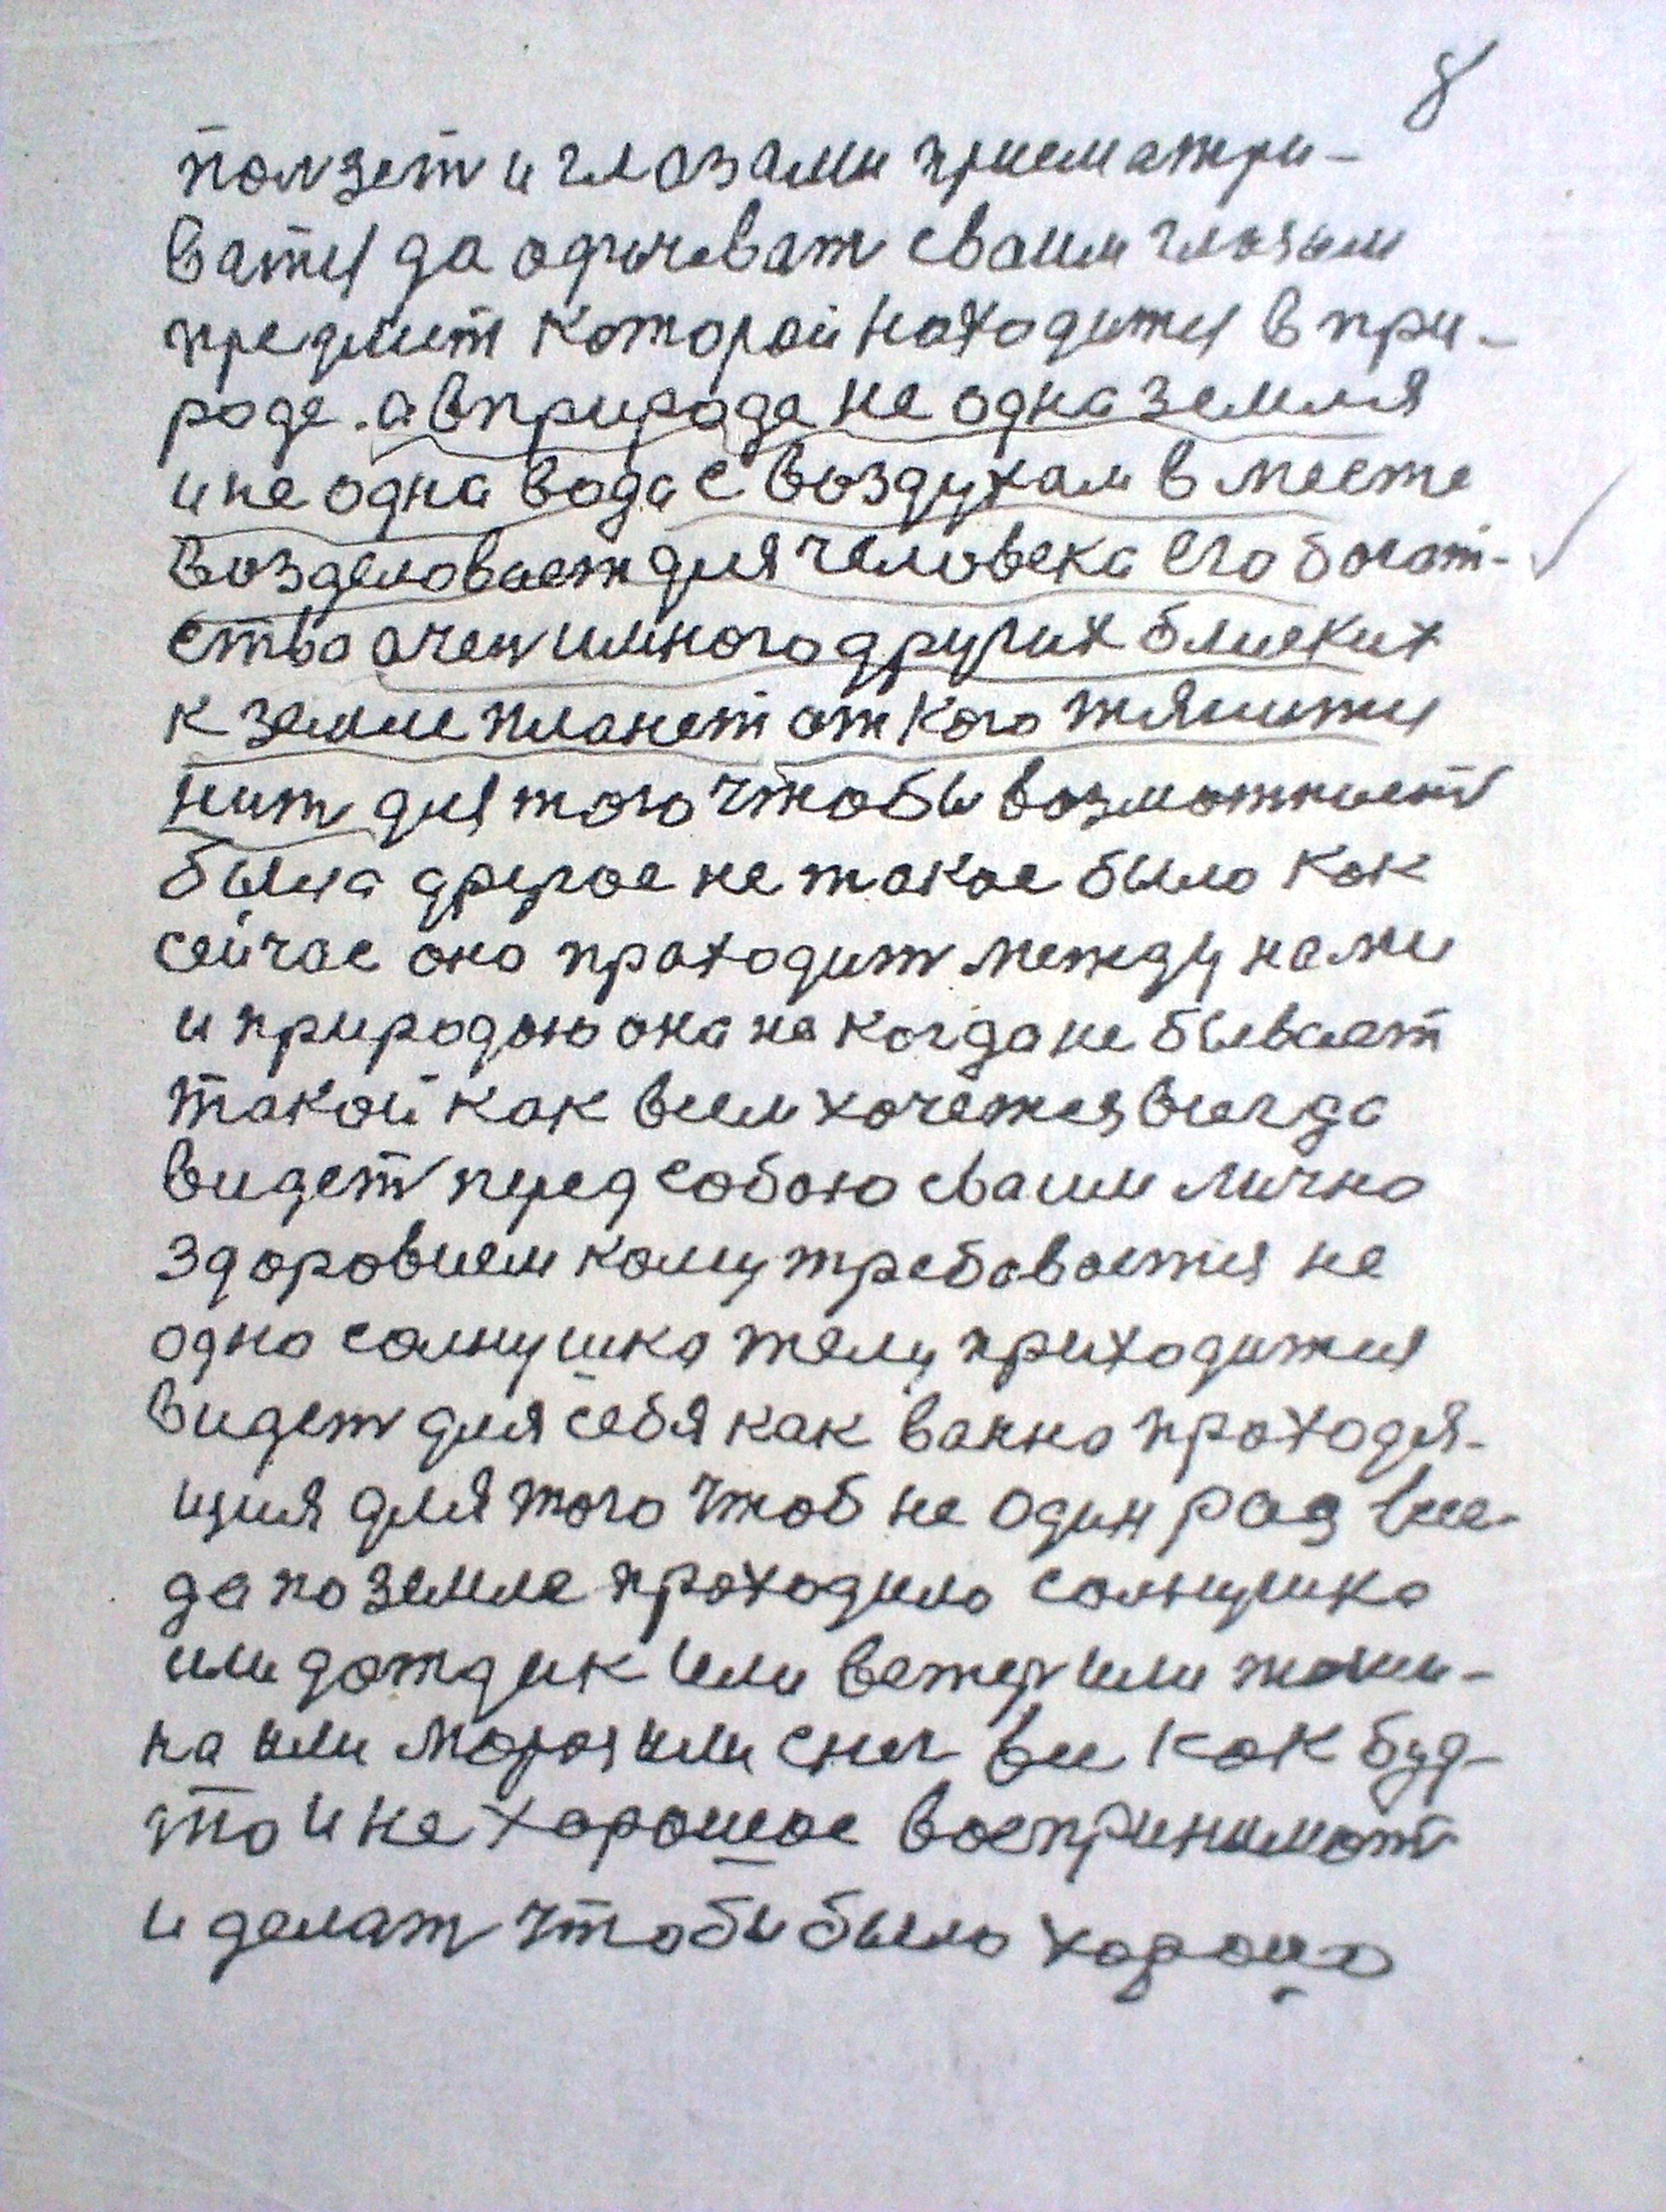 8
ползет и глазами присматри-
ватся да одичеват сваим глазам
предмет каторай находится в при-
роде. а в природе не одна земля
и не одна вода с воздухам в месте
возделовает для человека его богат-
ство а чен и много других блиских
к земле планет от кого тянится
нит для того чтобы возможност
была другое не такое было как
сейчас оно праходит между нами
и природою она не когда не бывает
такой как всем хочется всегда
видет перед собою сваим лично
здоровием кому требавается не
одно солнушко телу приходится
видет для себя как важно праходя-
щия для того чтоб не один раз все-
да по земле праходило солнушко
или дождик или ветер или тиши-
на или мороз или снег все как буд-
то и не харошое воспринимат
и делат чтобы было харошо